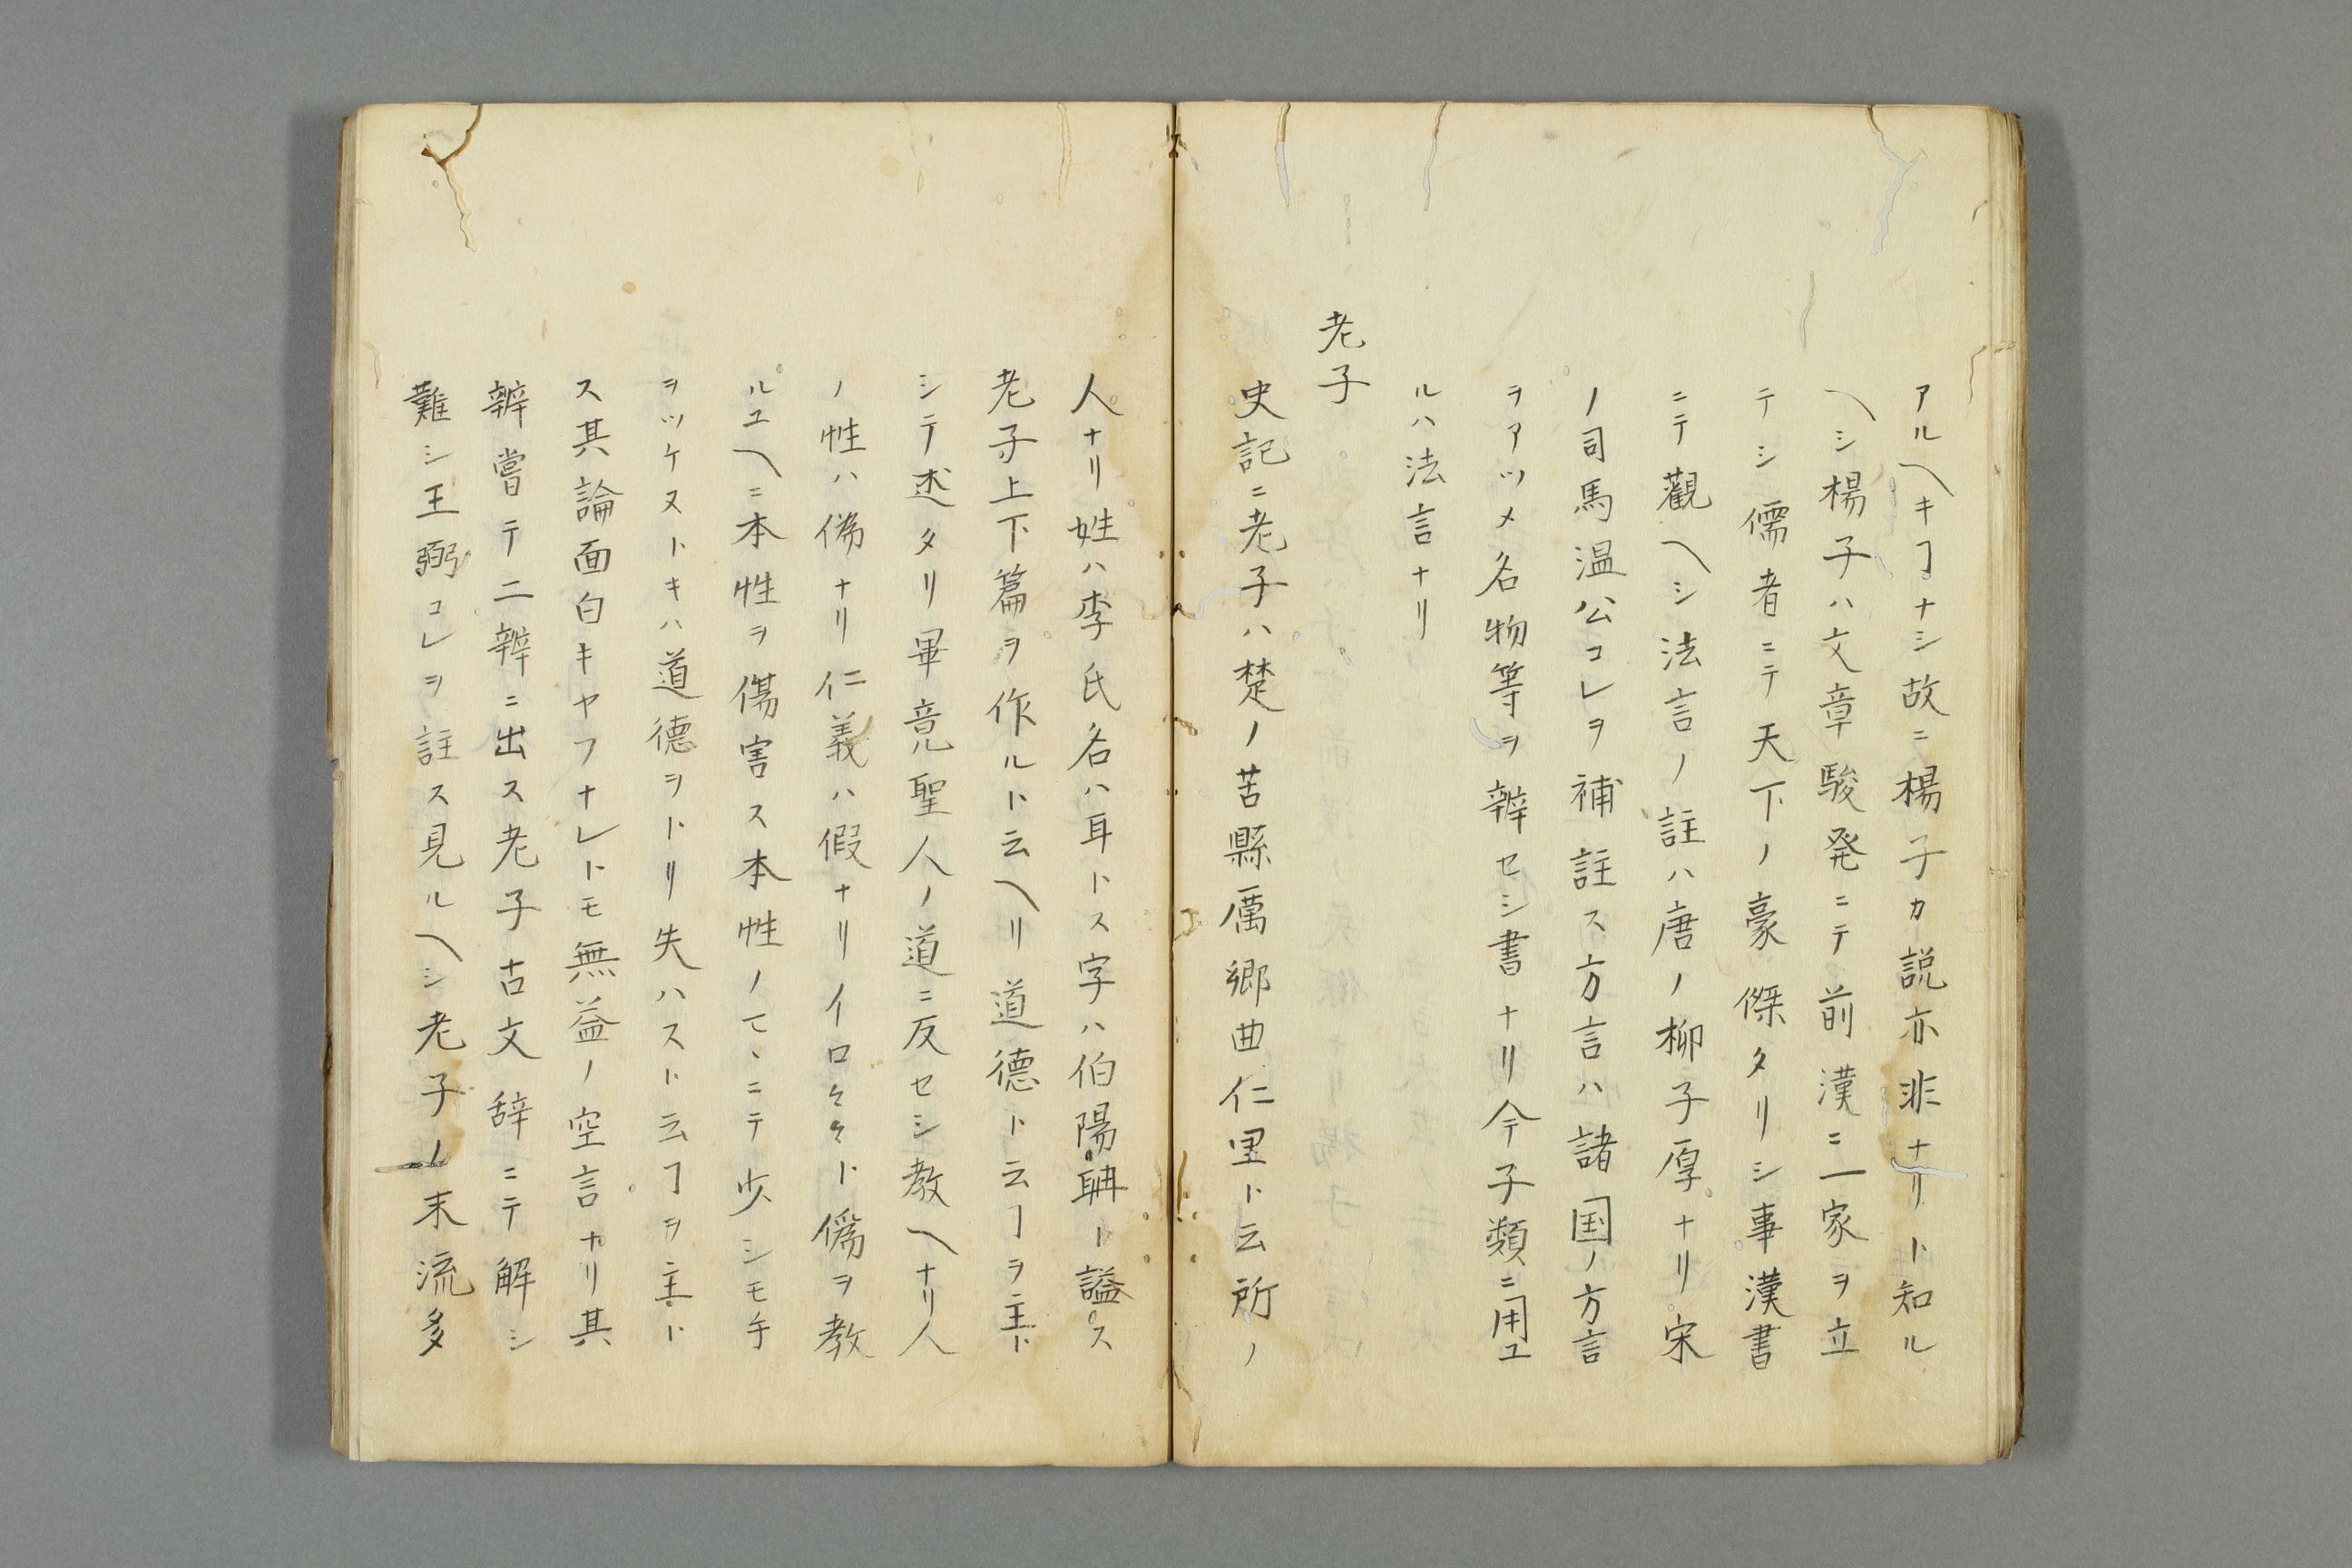 アルヘキヿナシ故ニ楊子カ説亦非ナリト知ル
ヘシ楊子ハ文章駿発ニテ前漢ニ一家ヲ立
テシ儒者ニテ天下ノ豪傑タリシ事漢書
ニテ觀ヘシ法言ノ註ハ唐ノ柳子厚ナリ宋
ノ司馬温公コレヲ補註ス方言ハ諸国ノ方言
ヲアツメ名物等ヲ辨セシ書ナリ今子類ニ用ユ
ルハ法言ナリ
老子
史記ニ老子ハ楚ノ苦縣厲郷曲仁里ト云所ノ
人ナリ姓ハ李氏名ハ耳トス字ハ伯陽聃ト謚ス
老子上下篇ヲ作ルト云ヘリ道德ト云ヿヲ主ト
シテ述タリ畢竟聖人ノ道ニ反セシ教ヘナリ人
ノ性ハ偽ナリ仁義ハ假ナリイロ々々ト僞ヲ教
ルユヘニ本性ヲ傷害ス本性ノマヽニテ少シモ手
ヲツケヌトキハ道德ヲトリ失ハスト云ヿヲ主ト
ス其論面白キヤフナレトモ無益ノ空言ナリ其
辨嘗テ二辨ニ出ス老子古文辞ニテ解シ
難シ王弼コレヲ註ス見ルヘシ老子ノ末流多